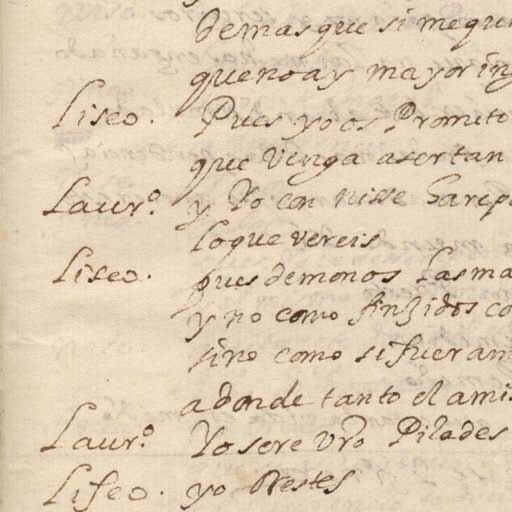 demas que si me que
que no ay mayor ing
Liseo. Pues yo os Prometo
que Venga a ser tan
Laurº. y Yo con nisse Hare
lo que vereis
Liseo. pues demonos las ma
y no como finjidos co
sino como si fueram
adonde tanto el amis
Laurº. Yo sere vrō Pilades
Liseo. yo Orestes